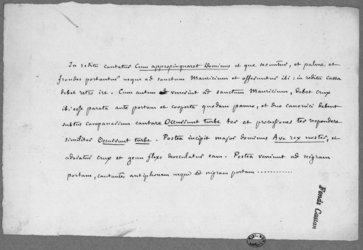 In reditu cantatur Cum appropinquaret Dominus et que secuntur, et palme, et
frondes portantur usque ad sanctum Mauricium et offeruntur ibi; in reditu cassa
debet retro ire. Cum autem venerint ad sanctum Mauricium, debet crux
ibi esse parata ante portam et cooperta quodam panno, et duo canonici debent
subtus campanarium cantare Occurrunt turbe tot et processiones tot respondere
similiter Occurrunt turbe. Postea incipit major dominus Ave rex noster, et
adoratur crux et genu flexo osculatur eam. Postea veniunt ad nigram
portam, cantantes antiphonam usque ad nigram portam
Fonds Coussin